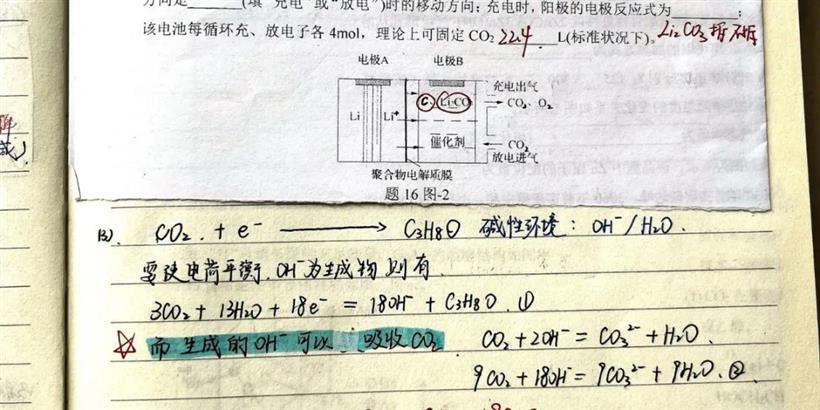 方向是______(填"充电"或"放电")时的移动方向;充电时,阳极的电极反应式为______;
该电池每循环充、放电子各4mol,理论上可固定CO₂ 22.4 L(标准状况下)。Li₂CO₃
电极A 电极B
充电出气
C Li₂CO₃ → CO₂、O₂
Li Li⁺
催化剂 ← CO₂
放电进气
聚合物电解质膜
题16图-2
CO₂ + e⁻ ⟶ C₃H₈O 碱性环境: OH⁻/H₂O.
要使电荷平衡 OH⁻为生成物 则有
3CO₂ + 13H₂O + 18e⁻ = 18OH⁻ + C₃H₈O. ①
☆ 而生成的OH⁻可以 吸收CO₂ CO₂ + 2OH⁻ = CO₃²⁻ + H₂O.
9CO₂ + 18OH⁻ = 9CO₃²⁻ + 9H₂O. ②